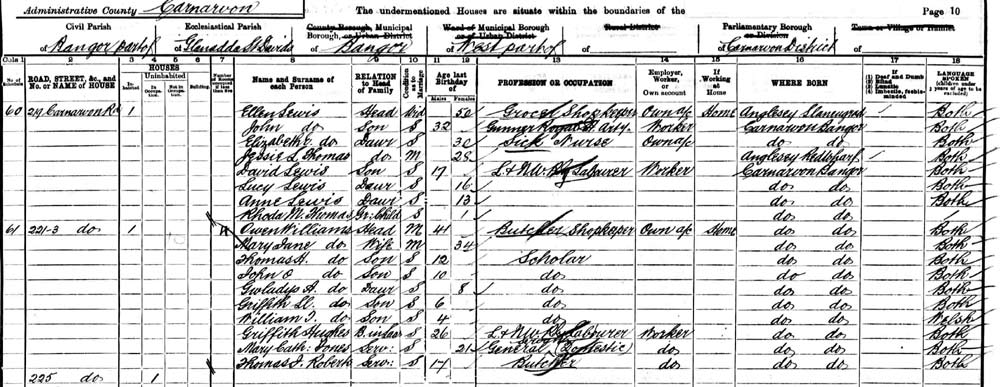 Administrative County Carnarvon The undermentioned Houses are situate within the boundaries of the Page 10
Civil Parish Ecclesiastical Parish County Borough, Municipal Borough, or Urban District Ward of Municipal Borough or of Urban District Rural District Parliamentary Borough or Division Town or Village or Hamlet
of Bangor part of of Glanadda St Davids of Bangor of West part of of of Carnarvon District of
Cols 1 2 3 4 5 6 7 8 9 10 11 12 13 14 15 16 17 18
No. of Schedule ROAD, STREET, &c., and No. or NAME of HOUSE HOUSES Inhabited Uninhabited In Occupation Not in Occupation Building Number of Rooms occupied if less than five Name and Surname of each Person RELATION to Head of Family Condition as to Marriage Age last Birthday of Males Females PROFESSION OR OCCUPATION Employer, Worker, or Own account If Working at Home WHERE BORN (1) Deaf and Dumb (2) Blind (3) Lunatic (4) Imbecile, feeble-minded LANGUAGE SPOKEN (children under 3 years of age to be excluded)
60 219 Carnarvon Rd 1 Ellen Lewis Head Wid 50 Grocer Shopkeeper Own a/c Home Anglesey Both
John do Son S 32 Gunner Royal Arty. Worker Carnarvon Bangor Both
Elizabeth do Daur S 30 Sick Nurse Own a/c do do Both
Jessie L Thomas do M 28 Anglesey Both
David Lewis Son S 17 L & N.W. Ry Labourer Worker Carnarvon Bangor Both
Lucy Lewis Daur S 16 do do Both
Anne Lewis Daur S 13 do do Both
Rhoda M. Thomas Gr: Child S 1 do do
61 221-3 do 1 Owen Williams Head M 41 Butcher Shopkeeper Own a/c Home do do Both
Mary Jane do Wife M 34 do do Both
Thomas H. do Son S 12 Scholar do do Both
John O do Son S 10 do do do Both
Gwladys A. do Daur S 8 do do do Both
Griffith Ll. do Son S 6 do do do Both
William I. do Son S 4 do do do Welsh
Griffith Hughes B. in law S 26 L & N.W. Ry Labourer Worker do do Both
Mary Cath: Jones Serv: S 21 General (Domestic) do do do Both
Thomas J. Roberts Serv: S 17 Butcher do do do Both
225 do 1